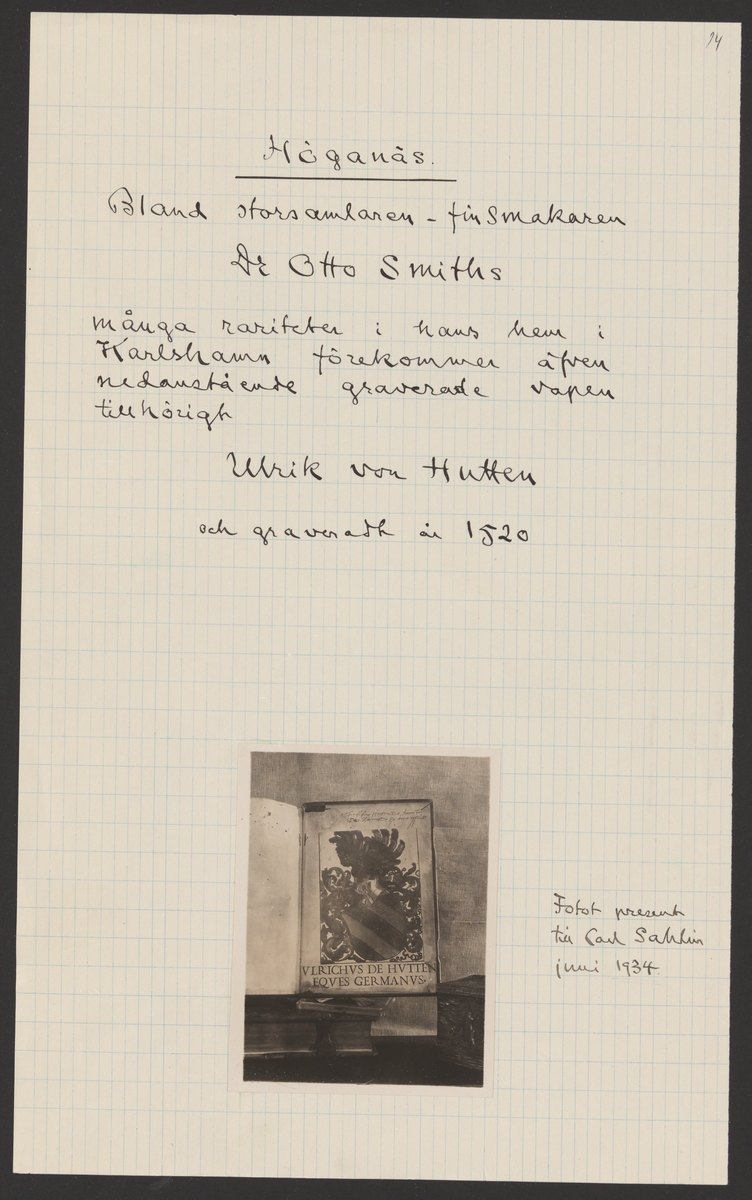 14
Höganäs.
Bland storsamlaren - finsmakaren
Dr Otto Smiths
många rariteter i hans hem i
Karlshamn förekommer äfven
nedanstående graverade vapen
tillhörigt
Ulrik von Hutten
och graveradt år 1520
VLRICHVS DE HVTTEN
EQVES GERMANVS.
Fotot present
till Carl Sahlin
juni 1934